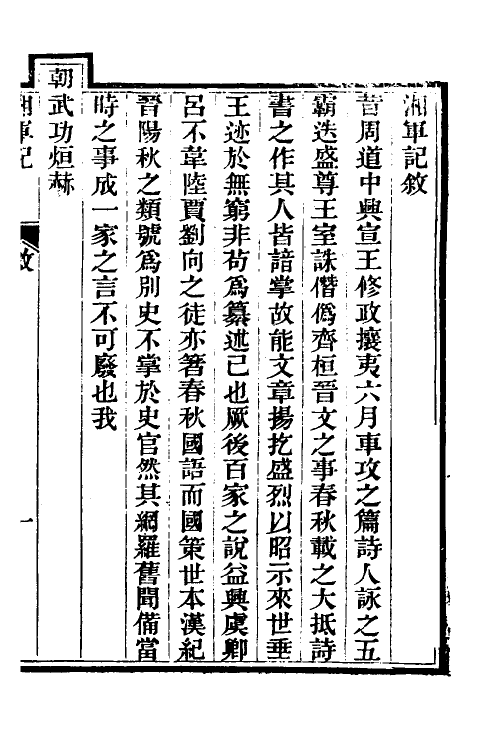 湘軍記敘
昔周道中興宣王修政攘夷六月車攻之篇詩人詠之五
霸迭盛尊王室誅僭僞齊桓晉文之事春秋載之大抵詩
書之作其人皆諳掌故能文章揚扢盛烈以昭示來世垂
王迹於無窮非茍爲纂述己也厥後百家之說益興虞卿
呂不韋陸賈劉向之徒亦箸春秋國語而國策世本漢紀
晉陽秋之類號爲別史不掌於史官然其網羅舊聞備當
時之事成一家之言不可廢也我
朝武功烜赫
湘軍記
敘
一